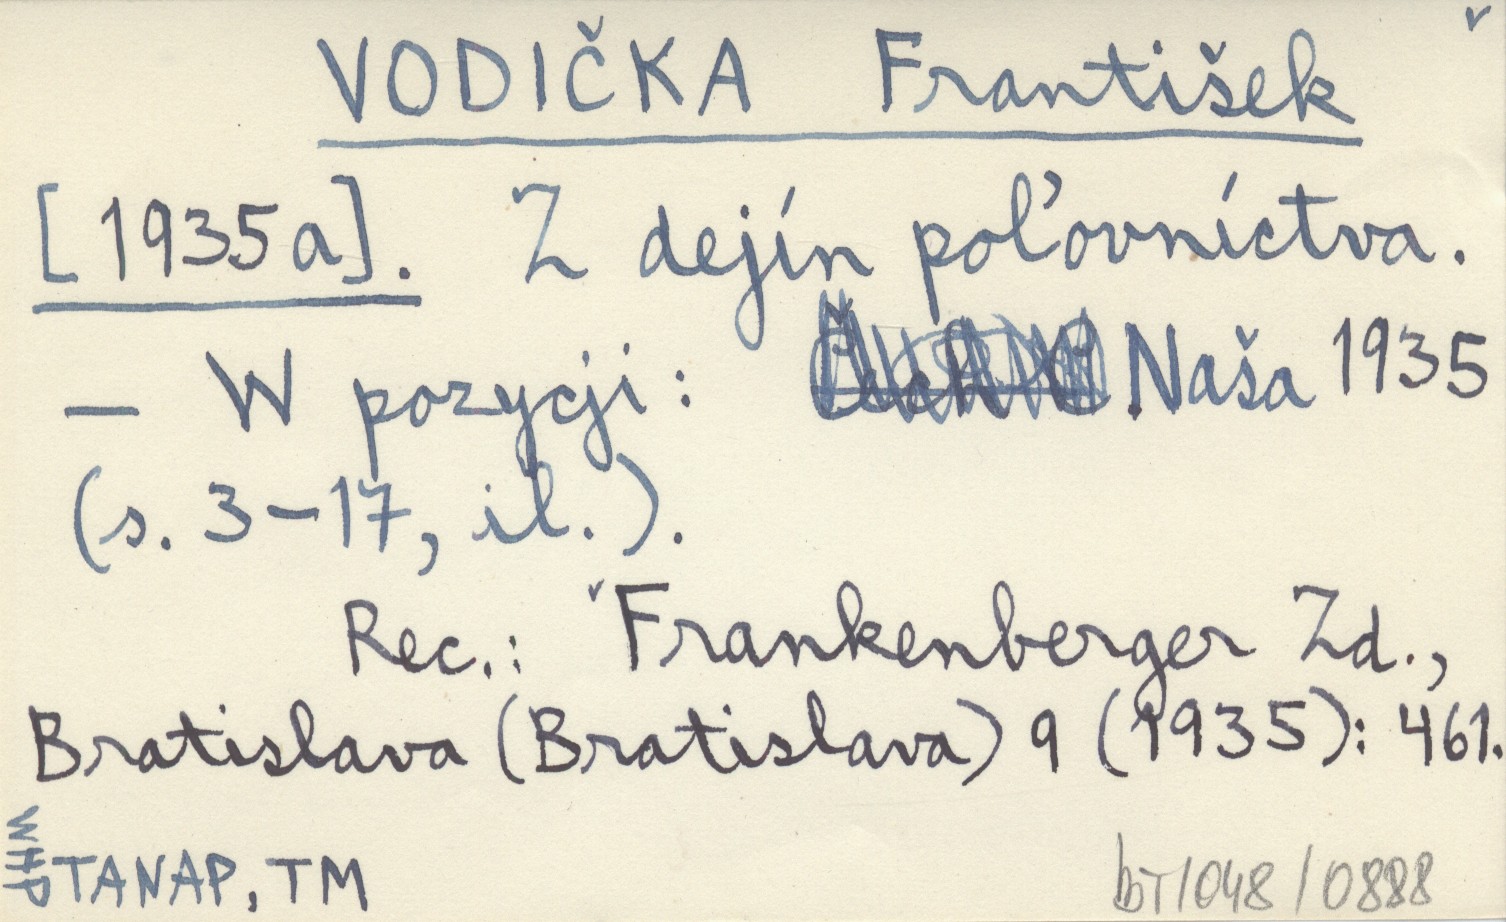 VODIČKA František
[1935a]. Z dejín poľovníctva.
— W pozycji: Naša 1935
(s. 3-17, il.).
Rec.: Frankenberger Zd.,
Bratislava (Bratislava) 9 (1935): 461.
WHP TANAP, TM
bT/048/0888